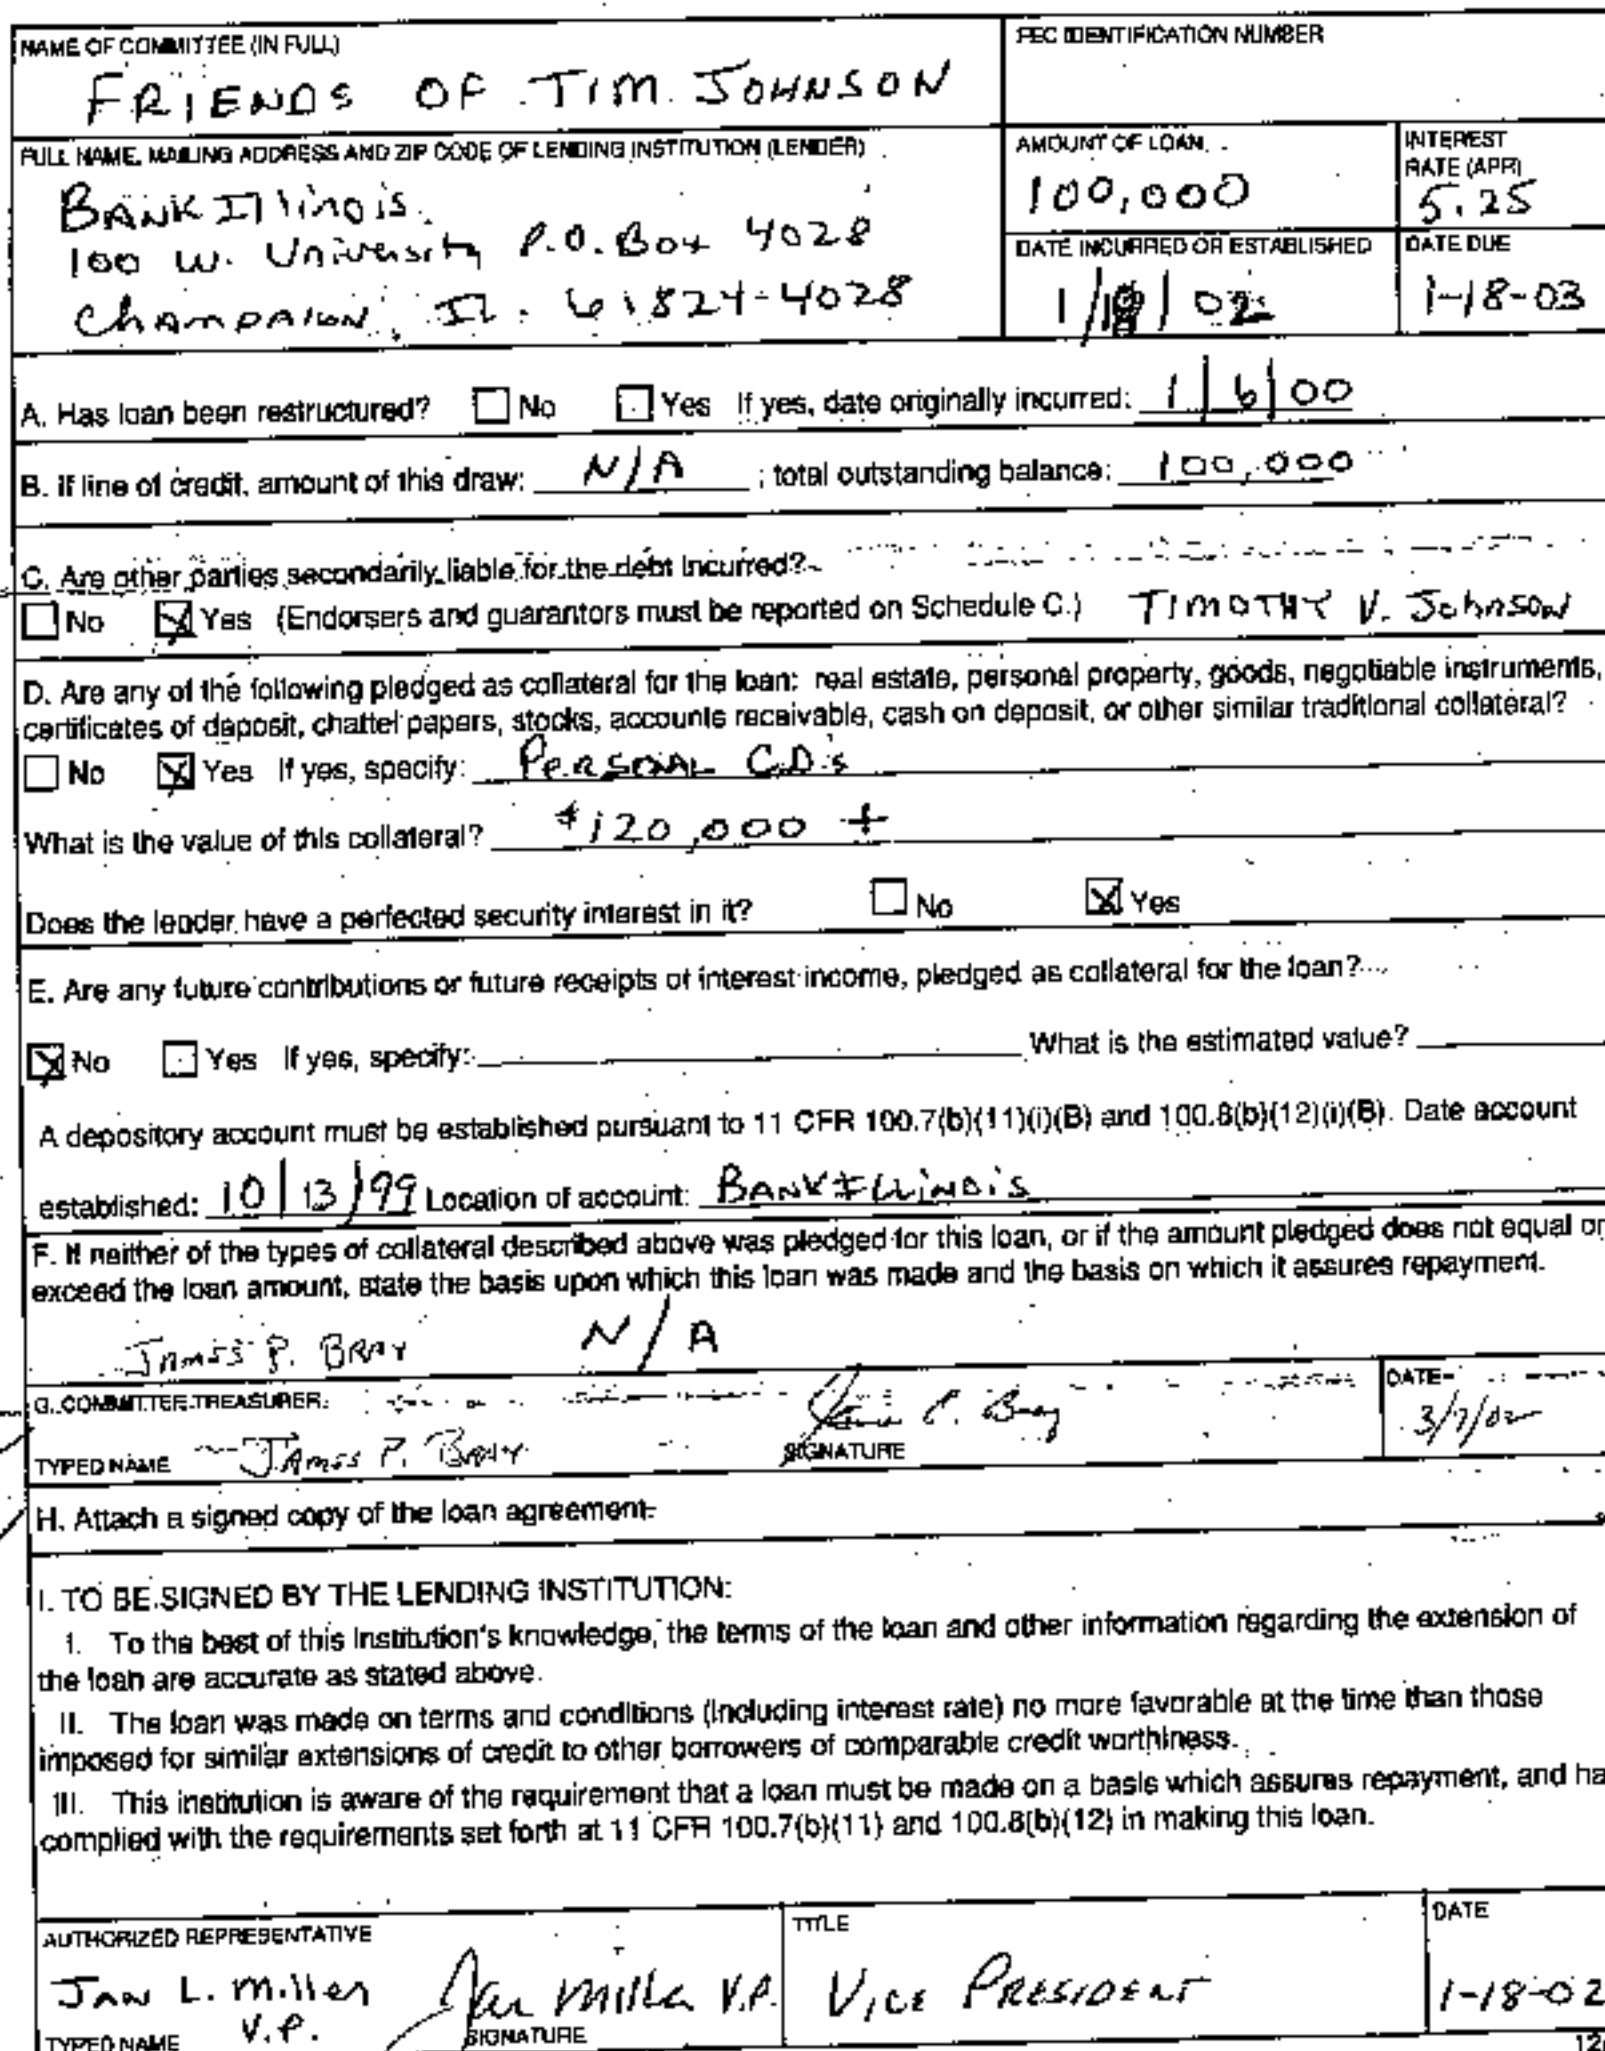 NAME OF COMMITTEE (IN FULL)
FRIENDS OF TIM JOHNSON
FEC IDENTIFICATION NUMBER
FULL NAME, MAILING ADDRESS AND ZIP CODE OF LENDING INSTITUTION (LENDER)
BANKIllinois
100 W. University P.O. Box 4028
Champaign, IL. 61824-4028
AMOUNT OF LOAN
100,000
INTEREST
RATE (APR)
5.25
DATE INCURRED OR ESTABLISHED
1/18/02
DATE DUE
1-18-03
A. Has loan been restructured? No Yes If yes, date originally incurred: 1/6/00
B. If line of credit, amount of this draw: N/A ; total outstanding balance: 100,000
C. Are other parties secondarily liable for the debt incurred?
No Yes (Endorsers and guarantors must be reported on Schedule C.) TIMOTHY V. Johnson
D. Are any of the following pledged as collateral for the loan: real estate, personal property, goods, negotiable instruments,
certificates of deposit, chattel papers, stocks, accounts receivable, cash on deposit, or other similar traditional collateral?
No Yes If yes, specify: Personal C.D.'s
What is the value of this collateral? $120,000 +
Does the lender have a perfected security interest in it? No Yes
E. Are any future contributions or future receipts of interest income, pledged as collateral for the loan?
No Yes If yes, specify: What is the estimated value?
A depository account must be established pursuant to 11 CFR 100.7(b)(11)(i)(B) and 100.8(b)(12)(i)(B). Date account
established: 10/13/99 Location of account: BANKIllinois
F. If neither of the types of collateral described above was pledged for this loan, or if the amount pledged does not equal or
exceed the loan amount, state the basis upon which this loan was made and the basis on which it assures repayment.
James P. Bray N/A
G. COMMITTEE TREASURER:
TYPED NAME James P. Bray
SIGNATURE James P. Bray
DATE
3/7/02
H. Attach a signed copy of the loan agreement.
I. TO BE SIGNED BY THE LENDING INSTITUTION:
I. To the best of this institution's knowledge, the terms of the loan and other information regarding the extension of
the loan are accurate as stated above.
II. The loan was made on terms and conditions (including interest rate) no more favorable at the time than those
imposed for similar extensions of credit to other borrowers of comparable credit worthiness.
III. This institution is aware of the requirement that a loan must be made on a basis which assures repayment, and ha
complied with the requirements set forth at 11 CFR 100.7(b)(11) and 100.8(b)(12) in making this loan.
AUTHORIZED REPRESENTATIVE
Jan L. Miller
V.P.
TYPED NAME
Jan Miller V.P.
SIGNATURE
TITLE
Vice President
DATE
1-18-02
12